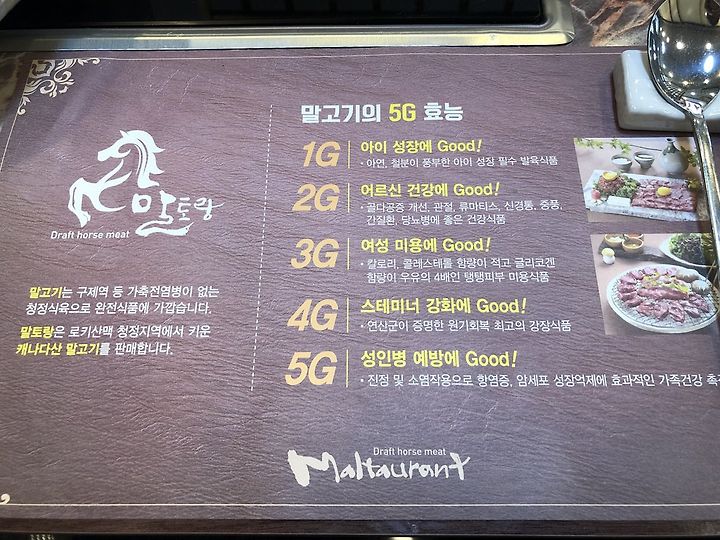 말토랑
Draft horse meat
말고기는 구제역 등 가축전염병이 없는
청정식육으로 완전식품에 가깝습니다.
말토랑은 로키산맥 청정지역에서 키운
캐나다산 말고기를 판매합니다.
말고기의 5G 효능
1G 아이 성장에 Good!
• 아연, 철분이 풍부한 아이 성장 필수 발육식품
2G 어르신 건강에 Good!
• 골다공증 개선, 관절, 류마티스, 신경통, 중풍,
간질환, 당뇨병에 좋은 건강식품
3G 여성 미용에 Good!
• 칼로리, 콜레스테롤 함량이 적고 글리코겐
함량이 우유의 4배인 탱탱피부 미용식품
4G 스테미너 강화에 Good!
• 연산군이 증명한 원기회복 최고의 강장식품
5G 성인병 예방에 Good!
• 진정 및 소염작용으로 항염증, 암세포 성장억제에 효과적인 가족건강
Draft horse meat
Maltaurant